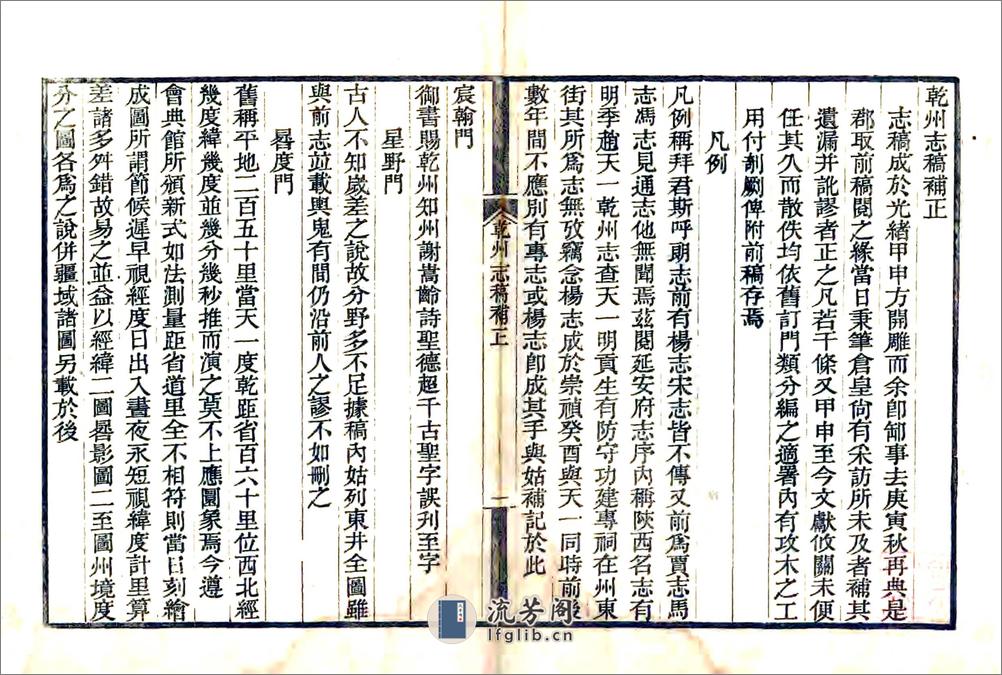 乾州志稿補正
志稿成於光緒甲申方開雕而余卽卸事去庚寅秋再典是
郡取前稿閱之緣當日秉筆倉皇尙有采訪所未及者補其
遺漏并訛謬者正之凡若干條又甲申至今文獻攸關未便
任其久而散佚均依舊訂門類分編之適署內有攻木之工
用付剞劂俾附前稿存焉
凡例
凡例稱拜君斯呼朗志前有楊志宋志皆不傳又前爲賈志馬
志馮志見通志他無聞焉茲閱延安府志序內稱陝西名志有
明季趙天一乾州志查天一明貢生有防守功建專祠在州東
街其所爲志無攷竊念楊志成於崇禎癸酉與天一同時前後
數年間不應別有專志或楊志卽成其手與姑補記於此
乾州志稿補正
一
宸翰門
御書賜乾州知州謝嵩齡詩聖德超千古聖字誤刋至字
星野門
古人不知歲差之說故分野多不足據稿內姑列東井全圖雖
與前志並載輿鬼有間仍沿前人之謬不如刪之
晷度門
舊稱平地二百五十里當天一度乾距省百六十里位西北經
幾度緯幾度並幾分幾秒推而演之莫不上應圜象焉今遵
會典館所頒新式如法測量距省道里全不相符則當日刻繪
成圖所謂節候遲早視經度日出入晝夜永短視緯度計里算
差諸多舛錯故易之並益以經緯二圖晷影圖二至圖州境度
分之圖各爲之說併疆域諸圖另載於後
流芳阁
lfglib.cn